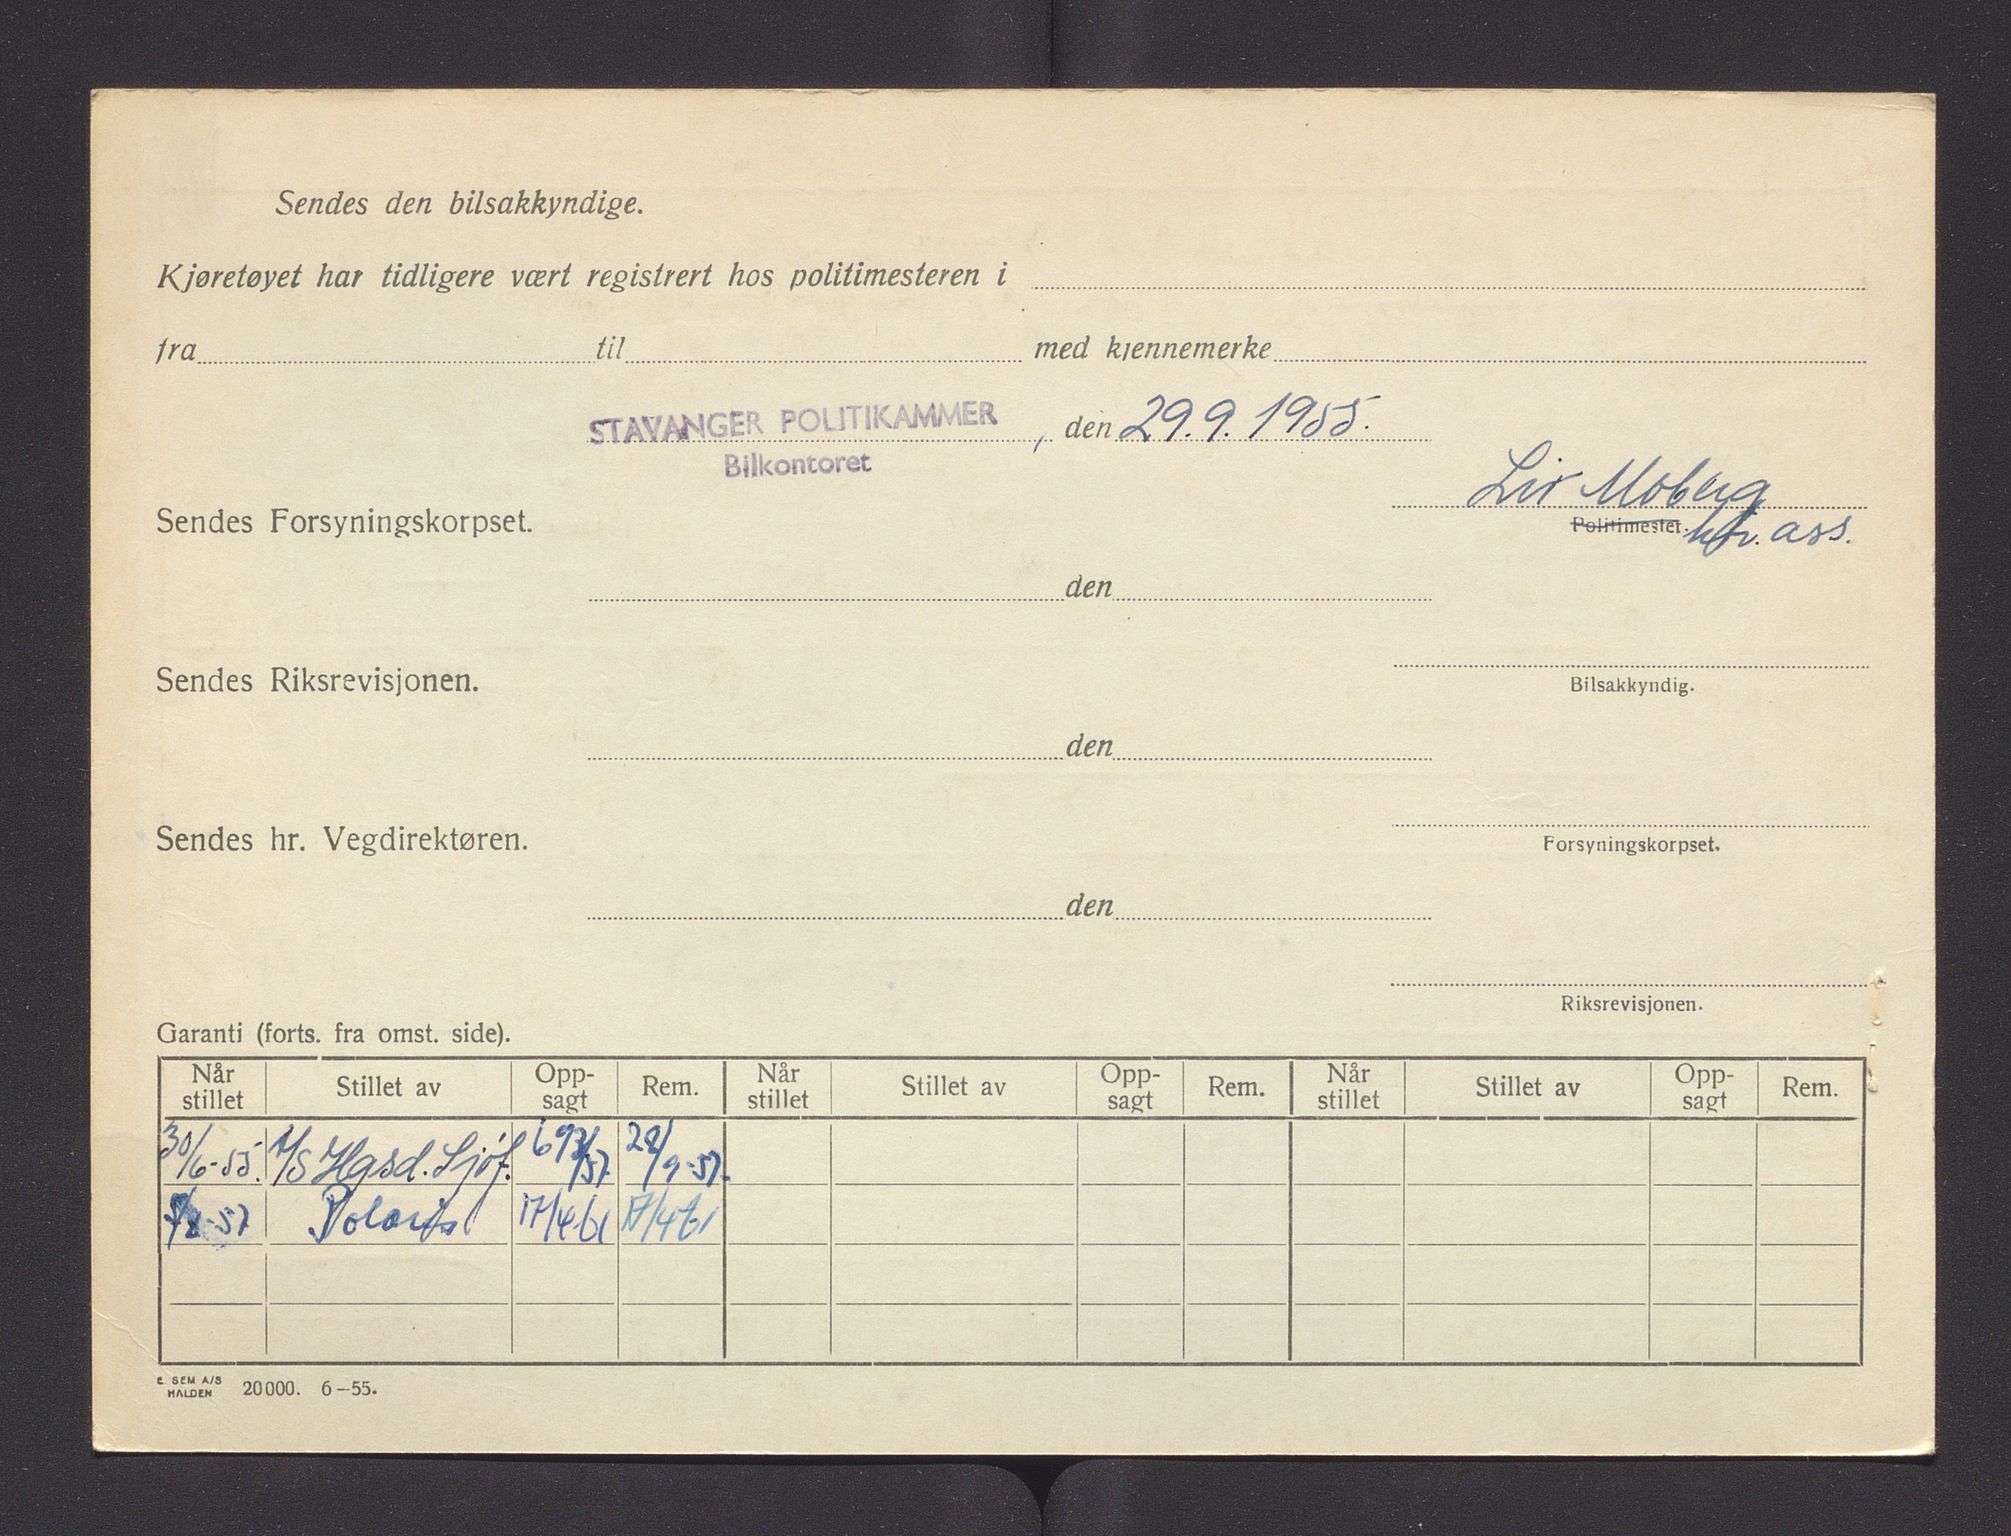 Sendes den bilsakkyndige.
Kjøretøyet har tidligere vært registrert hos politimesteren i
fra til med kjennemerke
STAVANGER POLITIKAMMER, den 29.9.1955.
Bilkontoret
Liv Moberg
Sendes Forsyningskorpset.
Politimester. ktr. ass.
den
Sendes Riksrevisjonen.
Bilsakkyndig.
den
Sendes hr. Vegdirektøren.
Forsyningskorpset.
den
Riksrevisjonen.
Garanti (forts. fra omst. side).
Når stillet Stillet av Opp-sagt Rem. Når stillet Stillet av Opp-sagt Rem. Når stillet Stillet av Opp-sagt Rem.
30/6-55. A/S Hgsd. Sjøf. 28/9-57.
/8-57 Polaris 17/4-61 17/4 61
E. SEM A/S
HALDEN 20000. 6-55.